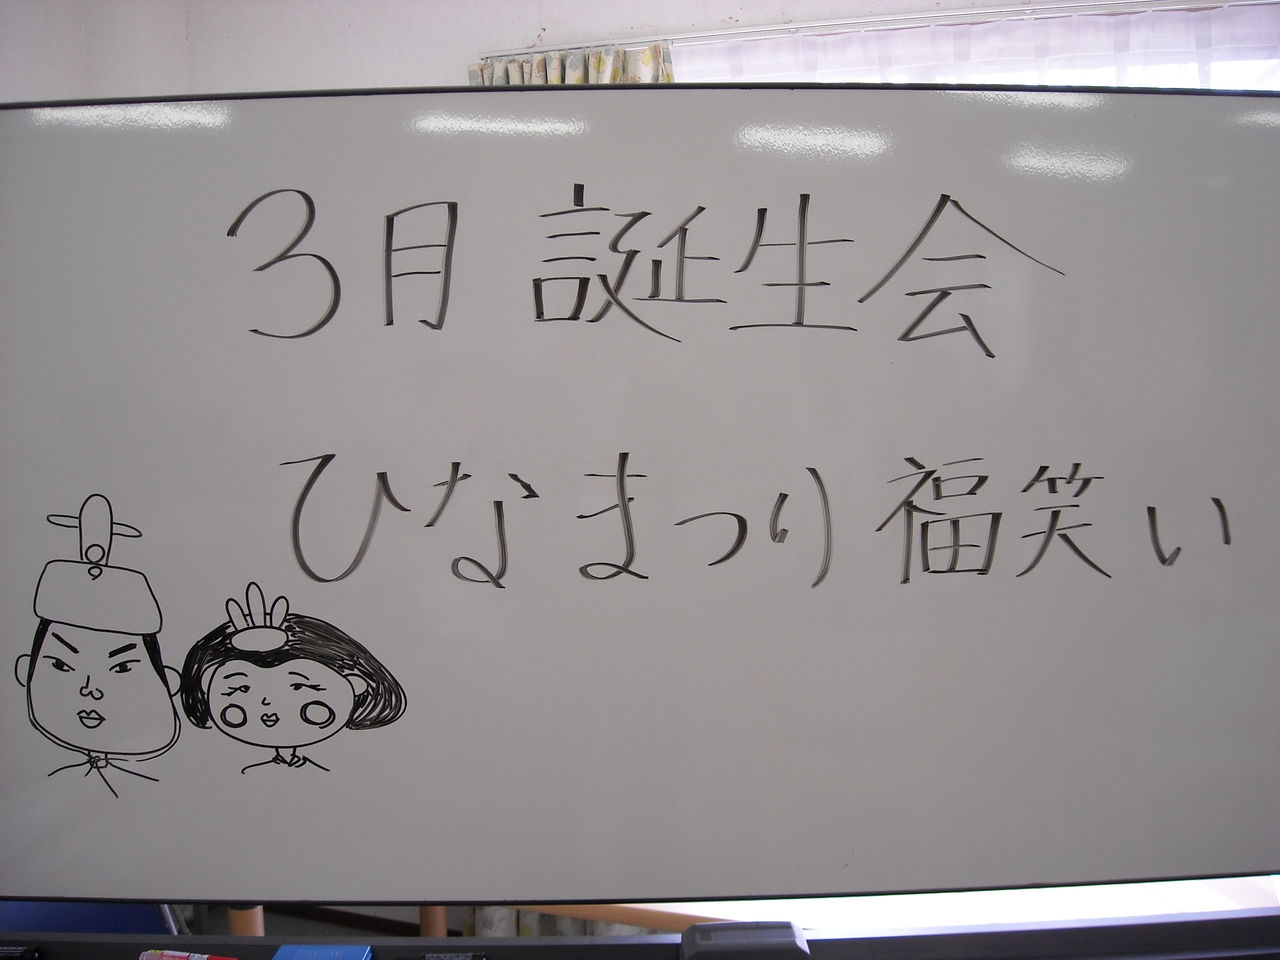 3月 誕生会
ひなまつり 福笑い